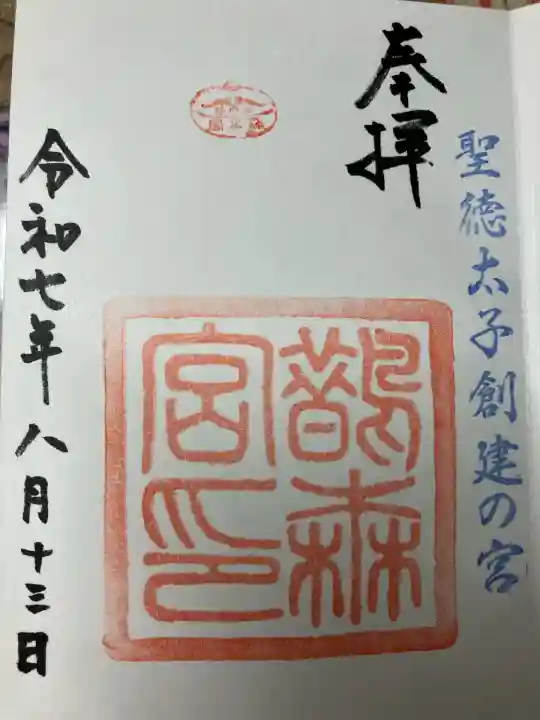 聖徳太子創建の宮
奉拝
鵲森
宮印
令和七年八月十三日